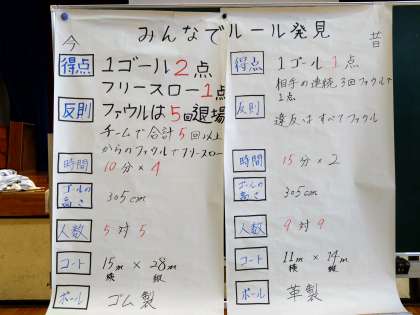 みんなでルール発見
今
得点 1ゴール2点
フリースロー1点
反則 ファウルは5回退場
チームで合計5回以上
からのファウルでフリースロー
時間 10分×4
ゴールの高さ 305cm
人数 5対5
コート 15m×28m
横 縦
ボール ゴム製
昔
得点 1ゴール1点
相手の連続3回ファウルで
1点
反則 違反はすべてファウル
時間 15分×2
ゴールの高さ 305cm
人数 9対9
コート 11m×14m
横 縦
ボール 革製